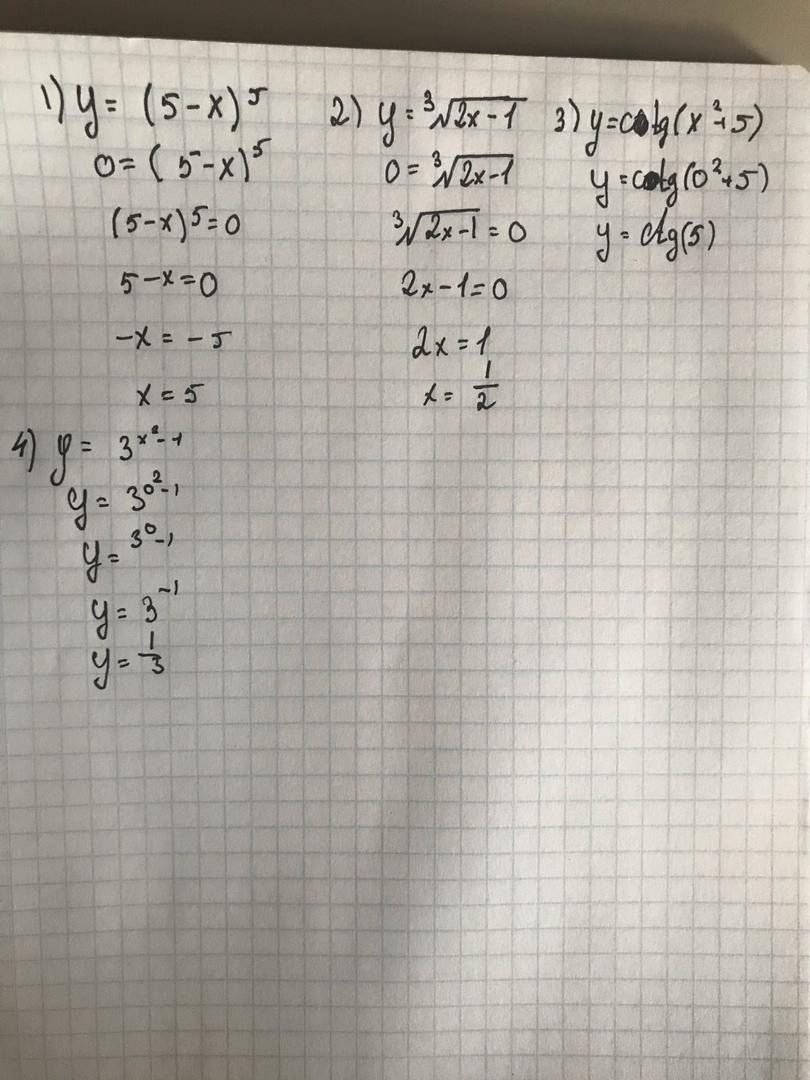 1) y = (5-x)⁵
0 = (5-x)⁵
(5-x)⁵ = 0
5-x = 0
-x = -5
x = 5
2) y = ³√(2x-1)
0 = ³√(2x-1)
³√(2x-1) = 0
2x-1 = 0
2x = 1
x = 1/2
3) y = ctg(x²+5)
y = ctg(0²+5)
y = ctg(5)
4) y = 3^(x²-1)
y = 3^(0²-1)
y = 3^(0-1)
y = 3⁻¹
y = 1/3